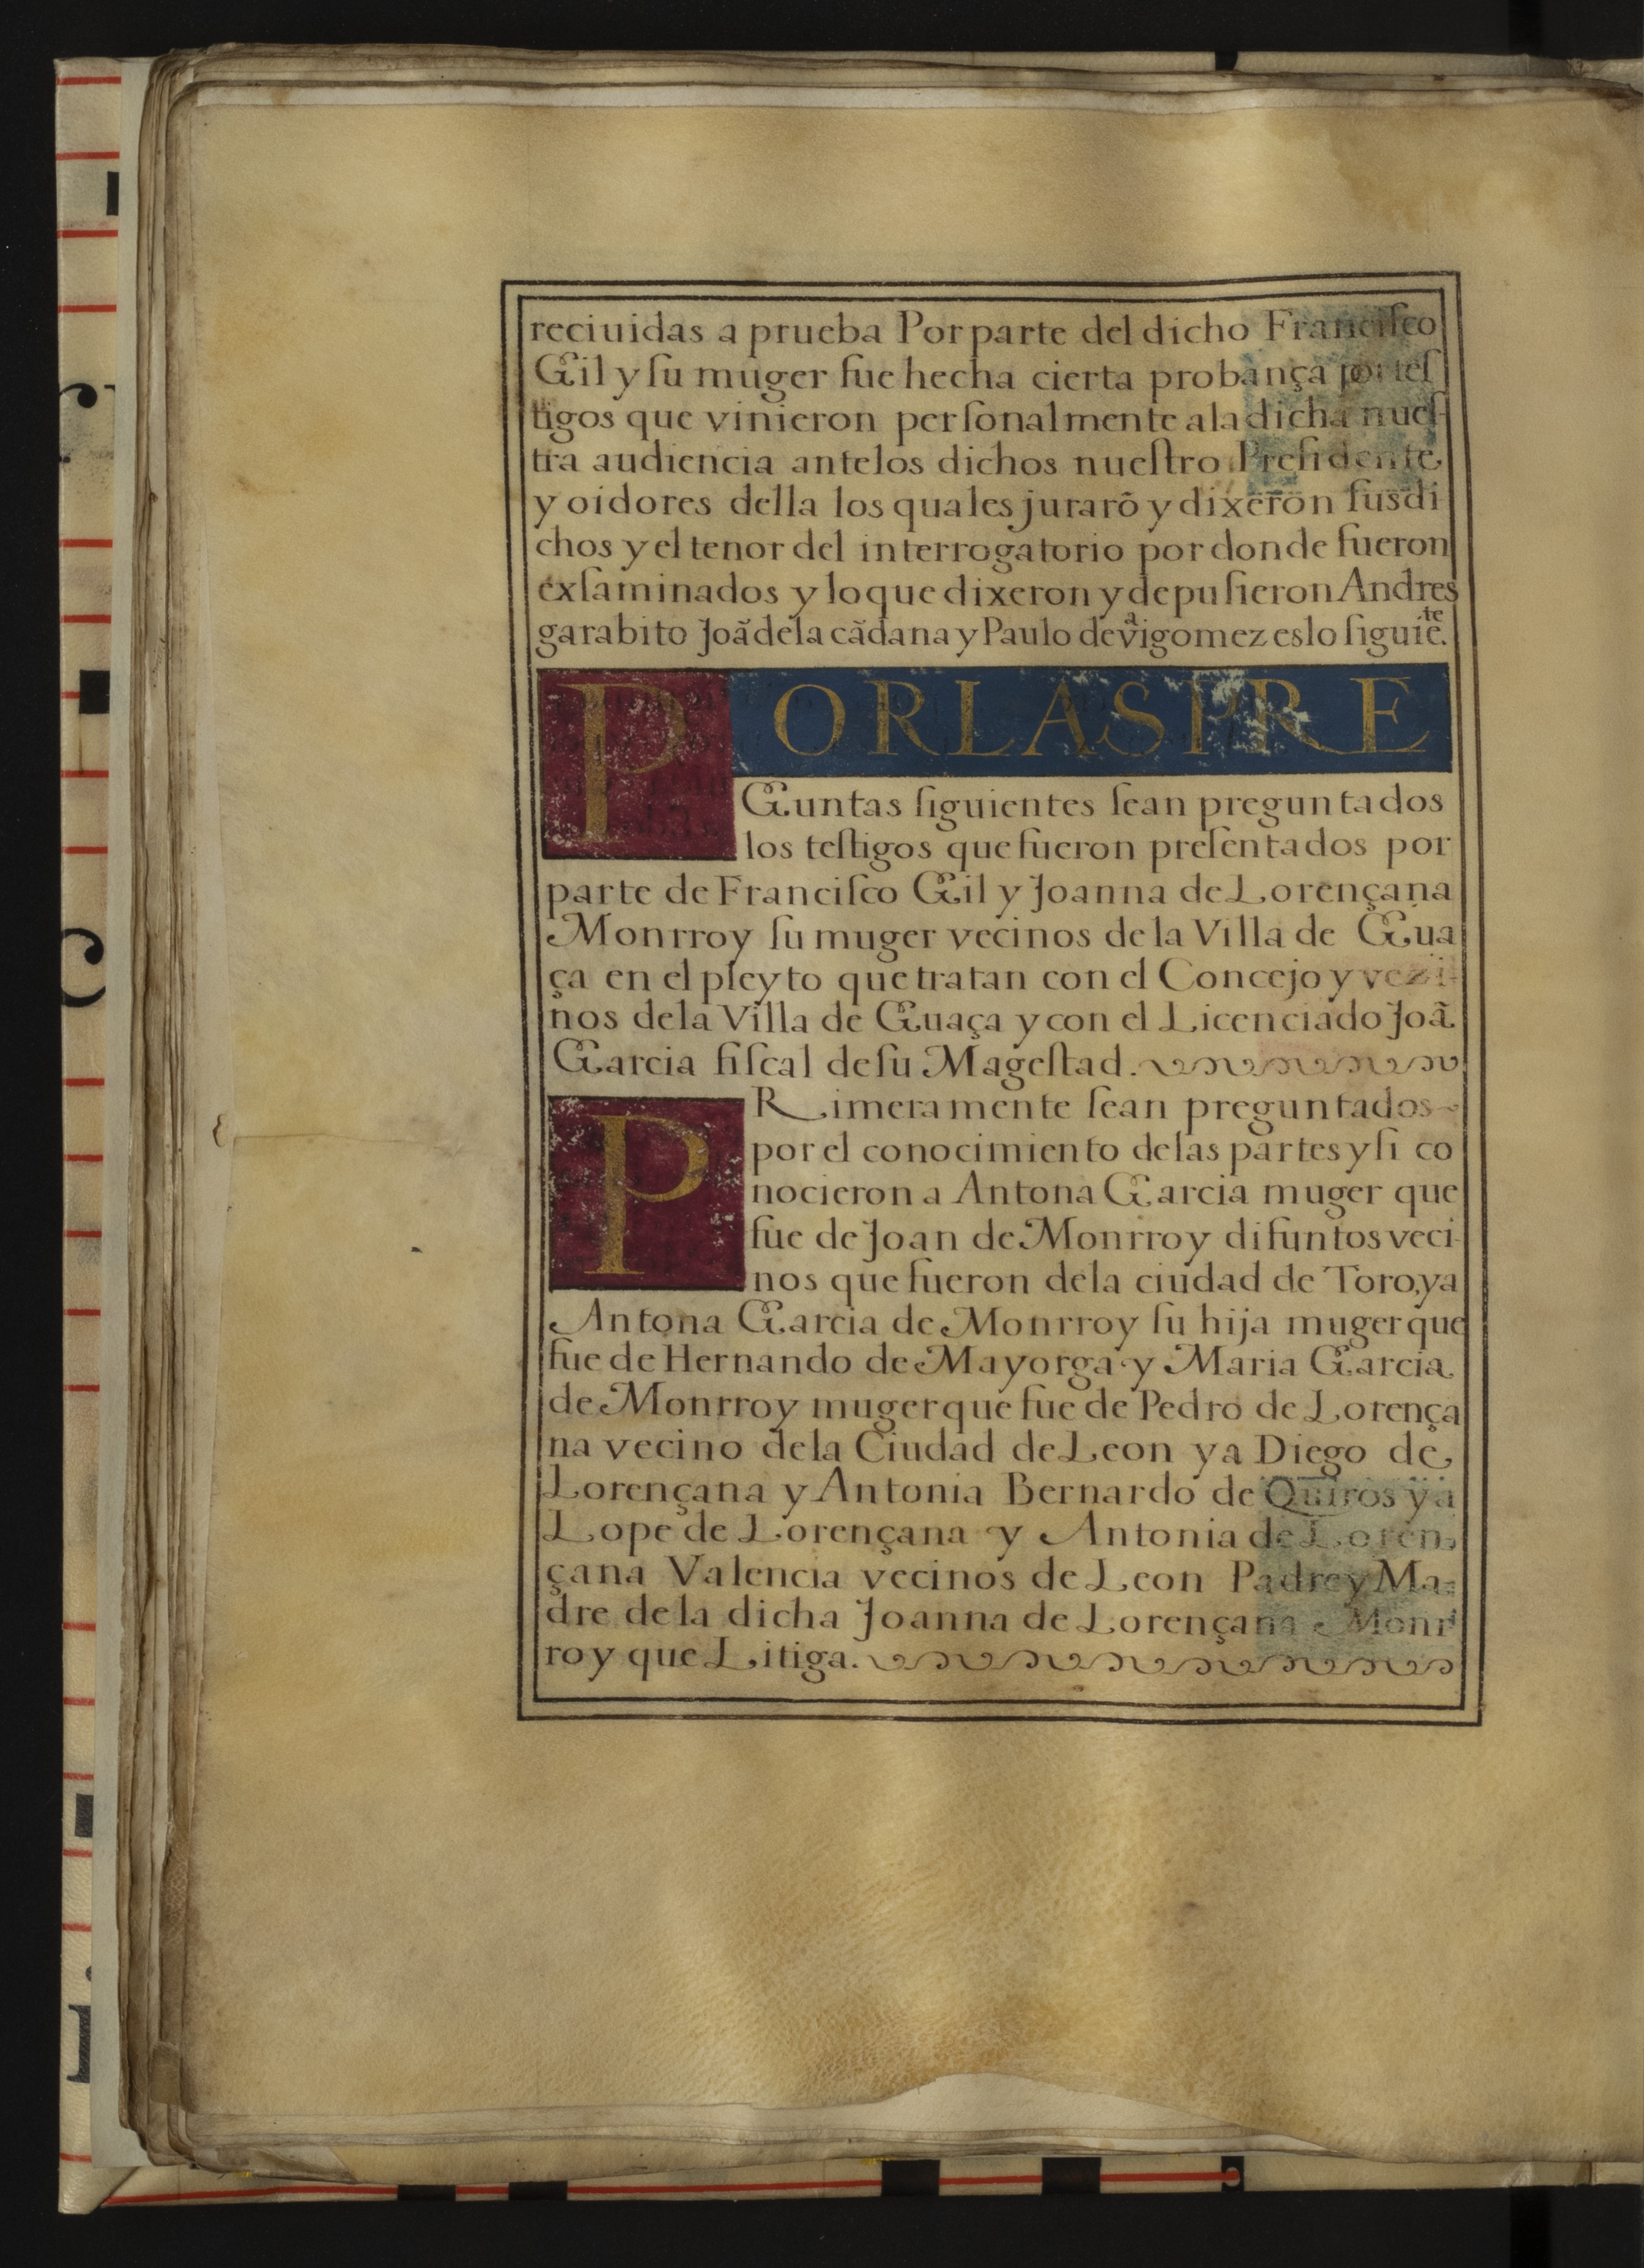 reciuidas a prueba Por parte del dicho Franciſco
Gil y ſu muger fue hecha cierta probança por teſ
tigos que vinieron perſonalmente a la dicha nueſ-
tra audiencia ante los dichos nueſtro Preſidente
y oidores della los quales jurarõ y dixeron ſus di
chos y el tenor del interrogatorio por donde fueron
exſaminados y lo que dixeron y depuſieron Andres
garabito Joã de la cãdana y Paulo de vᵃigomez es lo ſiguiẽᵗᵉ.
PORLASPRE
Guntas ſiguientes ſean preguntados
los teſtigos que fueron preſentados por
parte de Franciſco Gil y Joanna de Lorençana
Monrroy ſu muger vecinos de la Villa de Gua
ça en el pleyto que tratan con el Concejo y vezi-
nos de la Villa de Guaça y con el Licenciado Joã
Garcia fiſcal de ſu Mageſtad.
PRimeramente ſean preguntados
por el conocimiento de las partes y ſi co
nocieron a Antona Garcia muger que
fue de Joan de Monrroy difuntos veci-
nos que fueron de la ciudad de Toro, y a
Antona Garcia de Monrroy ſu hija muger que
fue de Hernando de Mayorga y Maria Garcia
de Monrroy muger que fue de Pedro de Lorença
na vecino de la Ciudad de Leon y a Diego de
Lorençana y Antonia Bernardo de Quiros y a
Lope de Lorençana y Antonia de Loren,
çana Valencia vecinos de Leon Padre y Ma-
dre de la dicha Joanna de Lorençana Monr
roy que Litiga.